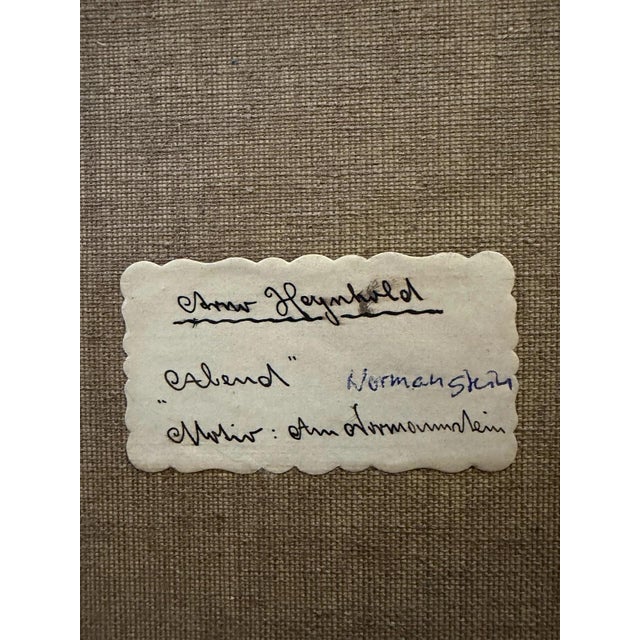 Arno Heynhold
„Abend" Normanstein
Motiv: Am Normannstein